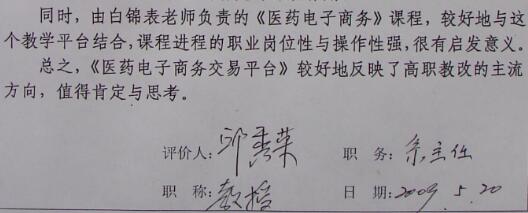 同时，由白锦表老师负责的《医药电子商务》课程，较好地与这
个教学平台结合，课程进程的职业岗位性与操作性强，很有启发意义。
总之，《医药电子商务交易平台》较好地反映了高职教改的主流
方向，值得肯定与思考。
评价人：邱秀荣 职 务：系主任
职 称：教授 日 期：2009.5.20